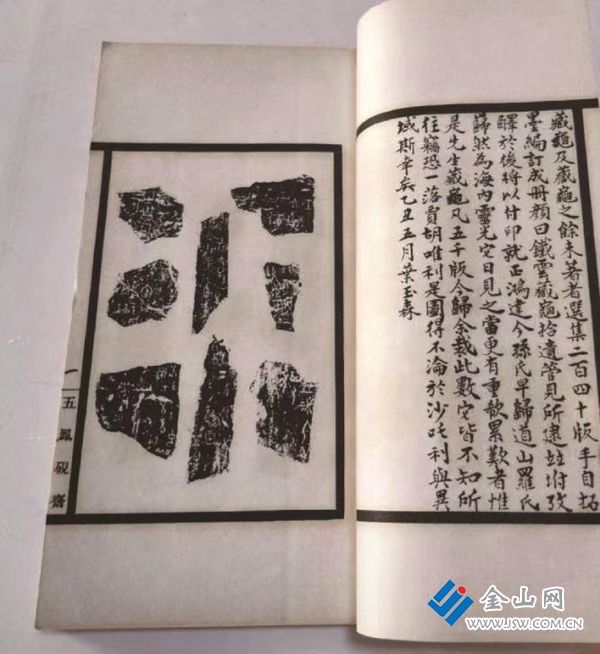 藏龜及藏龜之餘未著者選集二百四十版手自拓
墨編訂成冊顏曰鐵雲藏龜拾遺管見所逮坿攷
釋於後將以付印就正鴻達今孫氏早歸道山羅氏
巋然為海內靈光定日見之當更有重欷累歎者惟
是先生藏龜凡五千版今歸余裁此數定皆不知所
往竊恐一落賈胡唯利是圖得不淪於沙吒利與異
域斯幸矣乙丑五月葉玉森
一
五鳳硯齋
金山网
WWW.JSW.COM.CN